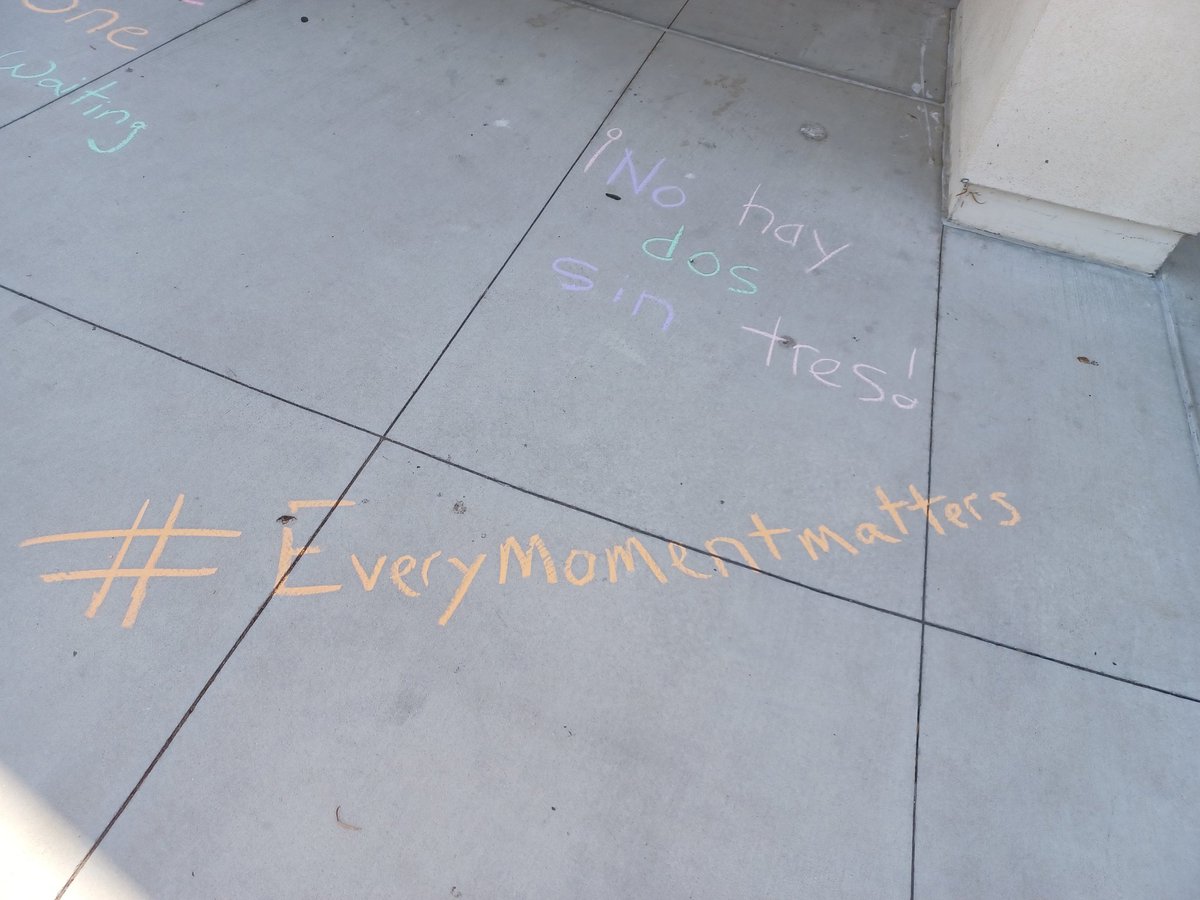 one
waiting
¡No hay
dos
sin tres!
#EveryMomentmatters